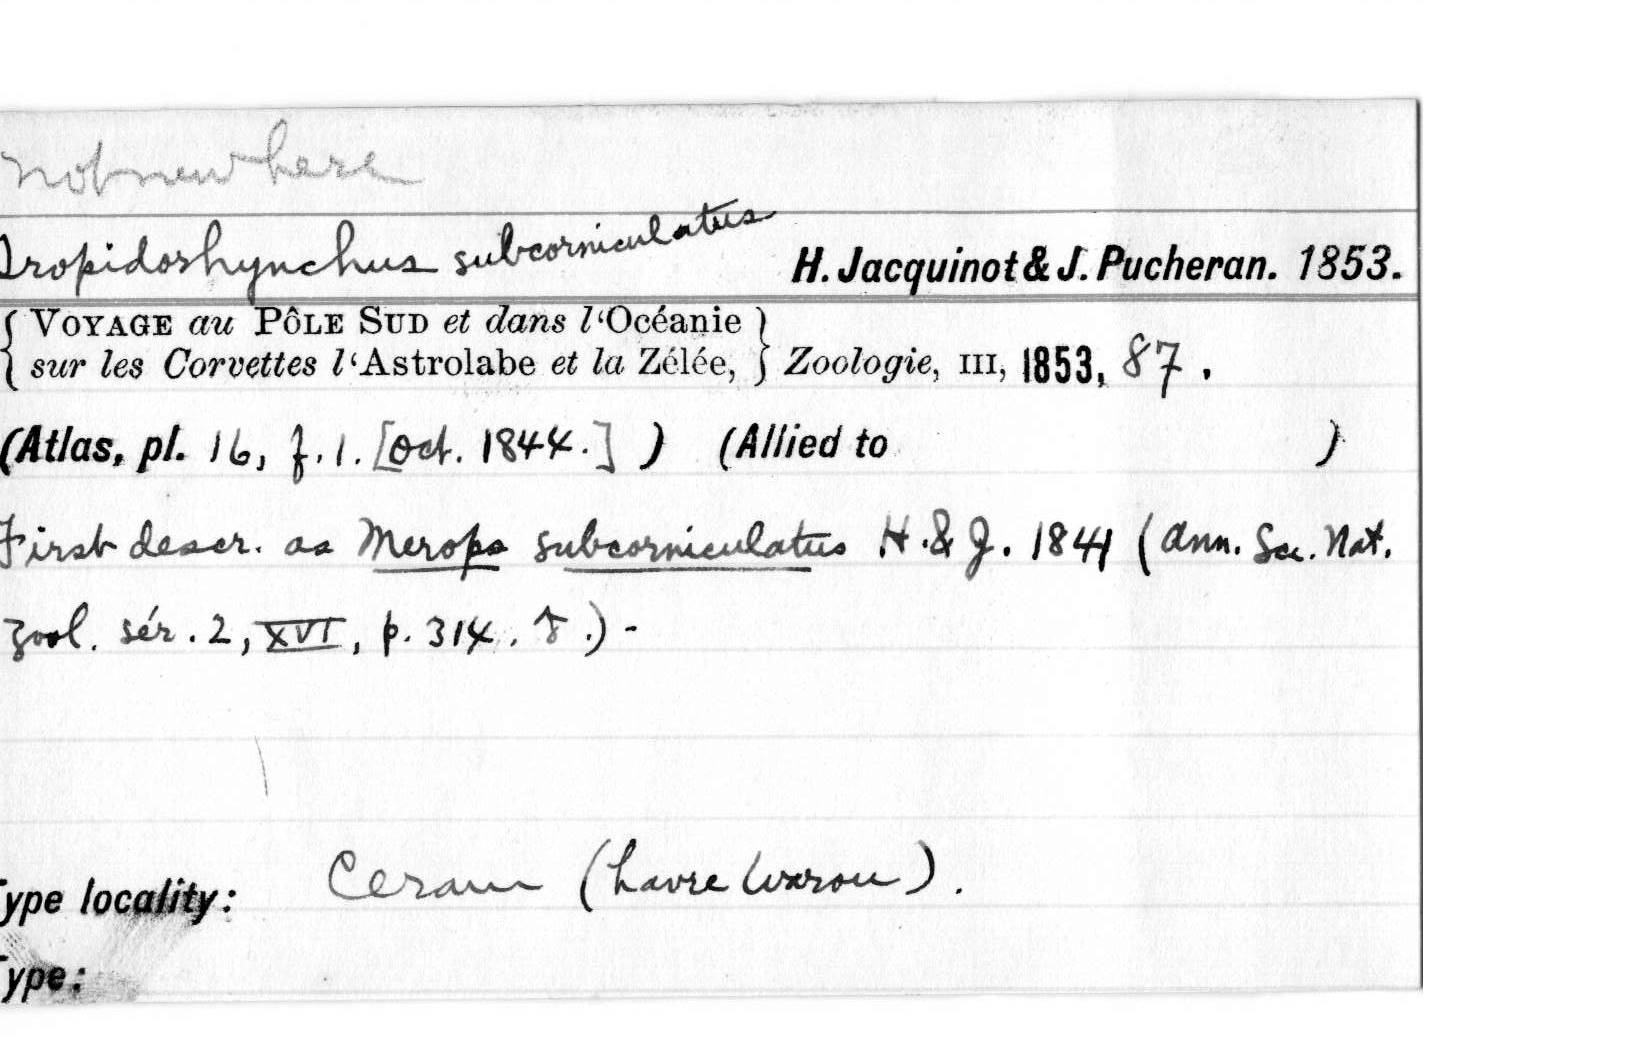 not new here
Tropidorhynchus subcorniculatus H. Jacquinot & J. Pucheran. 1853.
{ VOYAGE au PÔLE SUD et dans l'Océanie }
{ sur les Corvettes l'Astrolabe et la Zélée, } Zoologie, III, 1853, 87.
(Atlas, pl. 16, f. 1. [Oct. 1844.] ) (Allied to )
First descr. as Merops subcorniculatus H. & J. 1841 (Ann. Sci. Nat.
Zool. sér. 2, XVI, p. 314. .) -
Type locality: Ceram (havre Warou).
Type: